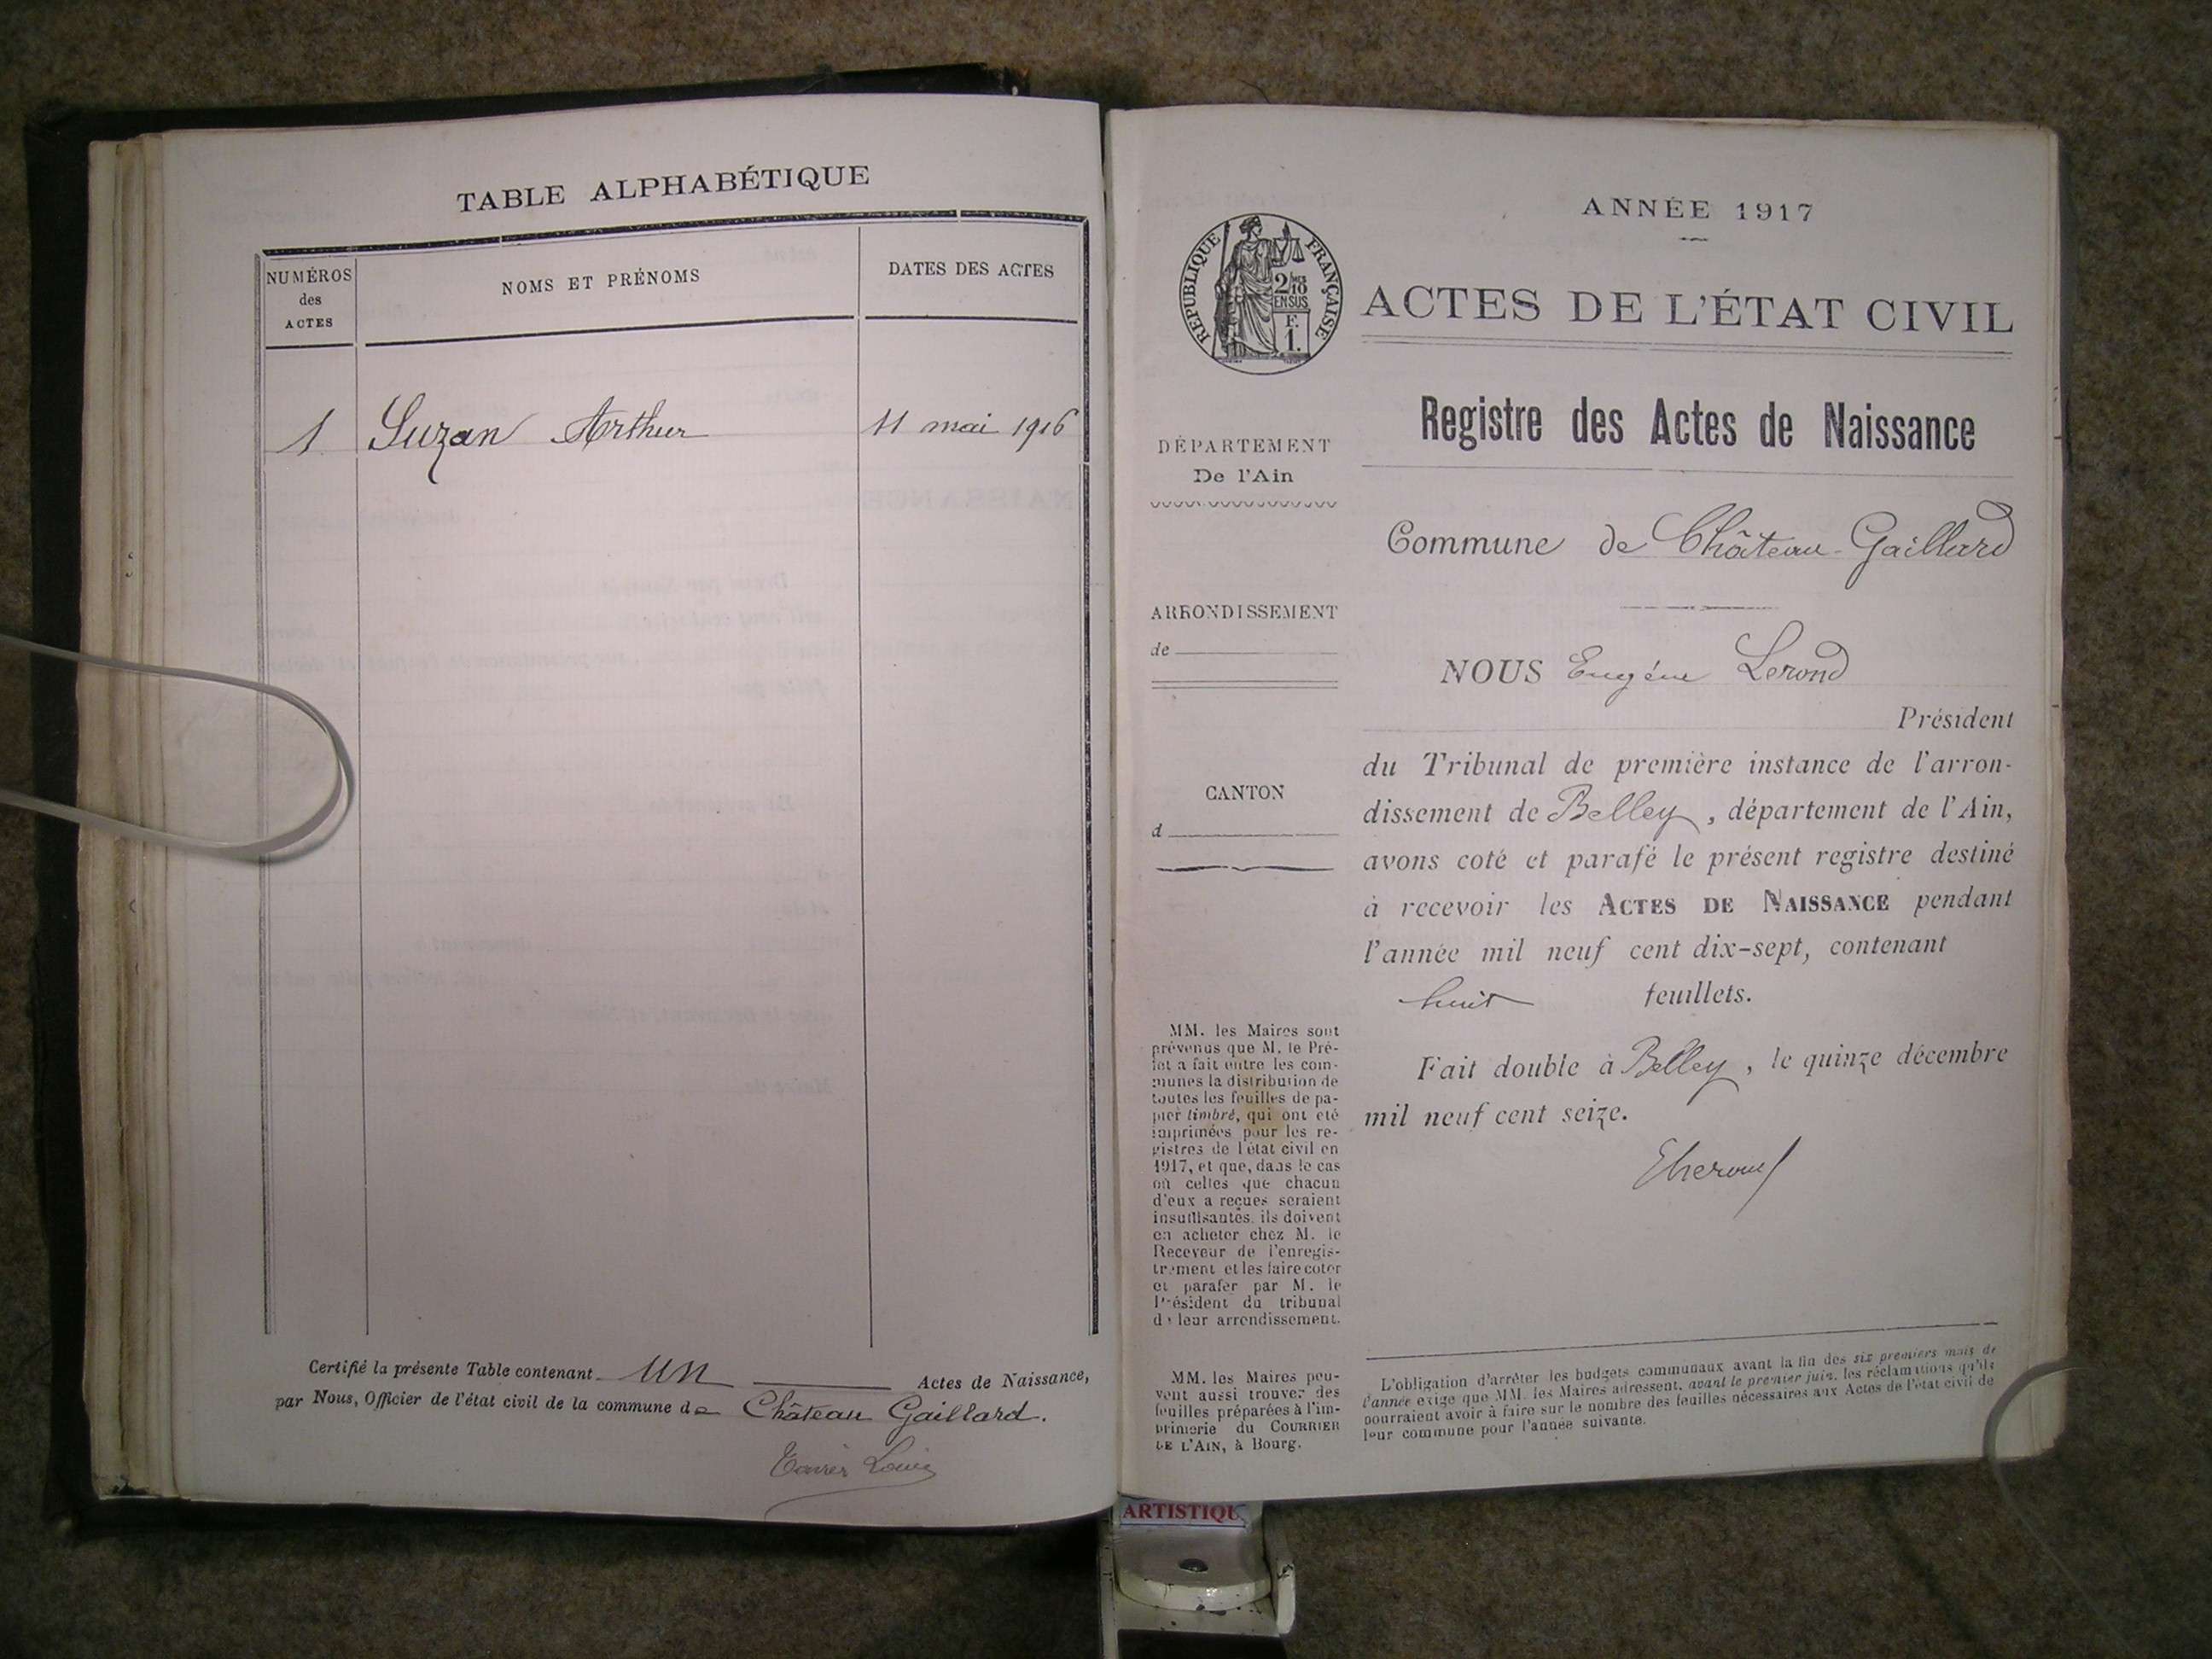 TABLE ALPHABÉTIQUE
NUMÉROS
des
ACTES
NOMS ET PRÉNOMS
DATES DES ACTES
1 Suzan Arthur 11 mai 1916
Certifié la présente Table contenant un Actes de Naissance,
par Nous, Officier de l'état civil de la commune de Château Gaillard.
Louis
ANNÉE 1917
RÉPUBLIQUE FRANÇAISE
2/10
EN SUS
F.
1.
ACTES DE L'ÉTAT CIVIL
Registre des Actes de Naissance
DÉPARTEMENT
De l'Ain
Commune de Château-Gaillard
ARRONDISSEMENT
de
NOUS Eugène Lerond
Président
du Tribunal de première instance de l'arron-
dissement de Belley, département de l'Ain,
avons coté et parafé le présent registre destiné
à recevoir les ACTES DE NAISSANCE pendant
l'année mil neuf cent dix-sept, contenant
huit feuillets.
Fait double à Belley, le quinze décembre
mil neuf cent seize.
CANTON
d
MM. les Maires sont
prévenus que M. le Pré-
fet a fait entre les com-
munes la distribution de
toutes les feuilles de pa-
pier timbré, qui ont été
imprimées pour les re-
gistres de l'état civil en
1917, et que, dans le cas
où celles que chacun
d'eux a reçues seraient
insuffisantes, ils doivent
en acheter chez M. le
Receveur de l'enregis-
trement et les faire coter
et parafer par M. le
Président du tribunal
de leur arrondissement.
MM. les Maires peu-
vent aussi trouver des
feuilles préparées à l'im-
primerie du COURRIER
DE L'AIN, à Bourg.
L'obligation d'arrêter les budgets communaux avant la fin des six premiers mois de
l'année exige que MM. les Maires adressent, avant le premier juin, les réclamations qu'ils
pourraient avoir à faire sur le nombre des feuilles nécessaires aux Actes de l'état civil de
leur commune pour l'année suivante.
ARTISTIQU